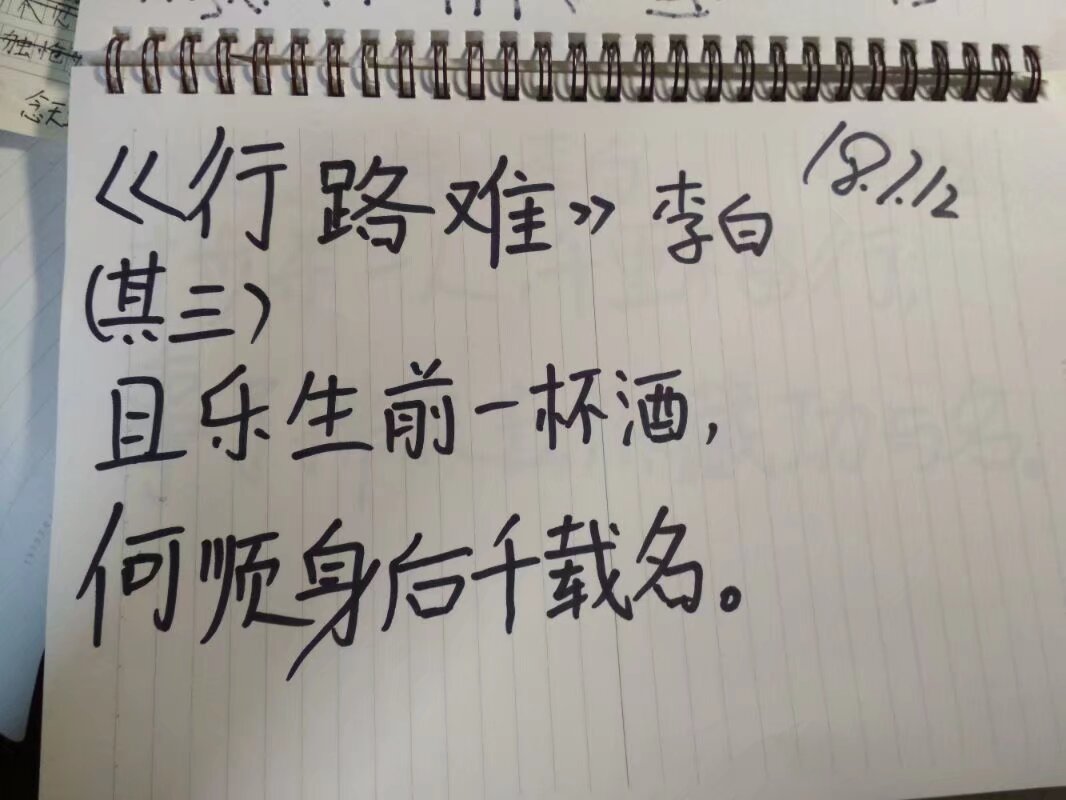 《行路难》李白 18.7.12
(其三)
且乐生前一杯酒,
何顺身后千载名。
念天